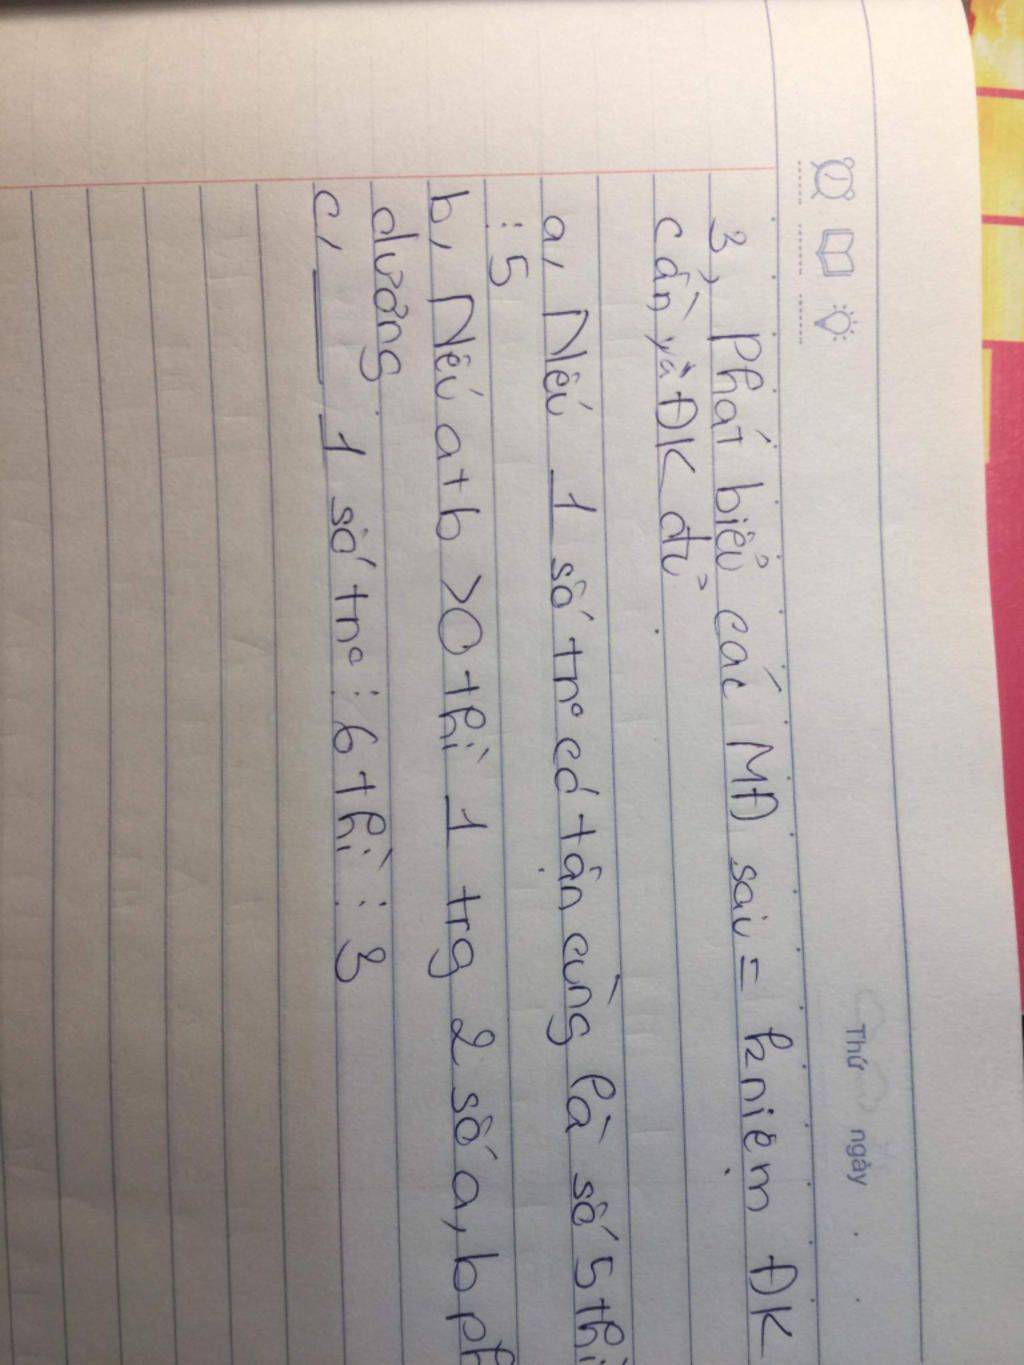 Thứ ngày
3, Phát biểu các MĐ sau = kniệm ĐK
cần và ĐK đủ
a, Nếu 1 số tnº có tận cùng là số 5 thì
⋮ 5
b, Nếu a+b >0 thì 1 trg 2 số a, b ph
dương
c, ___ 1 số tnº ⋮ 6 thì ⋮ 3